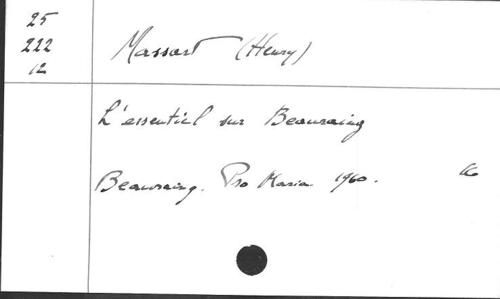 25
222
12
Massart (Henry)
L'essentiel sur Beauraing
Beauraing. Pro Maria 1960.